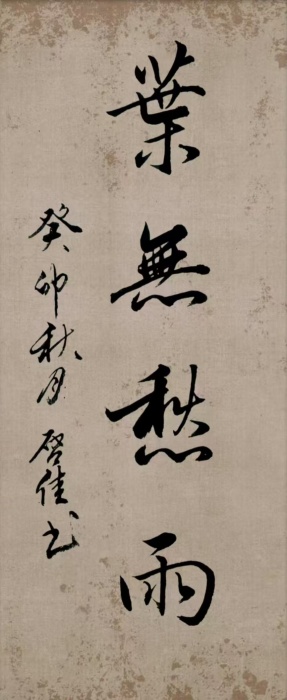 葉無愁雨
癸卯秋月啓佳书